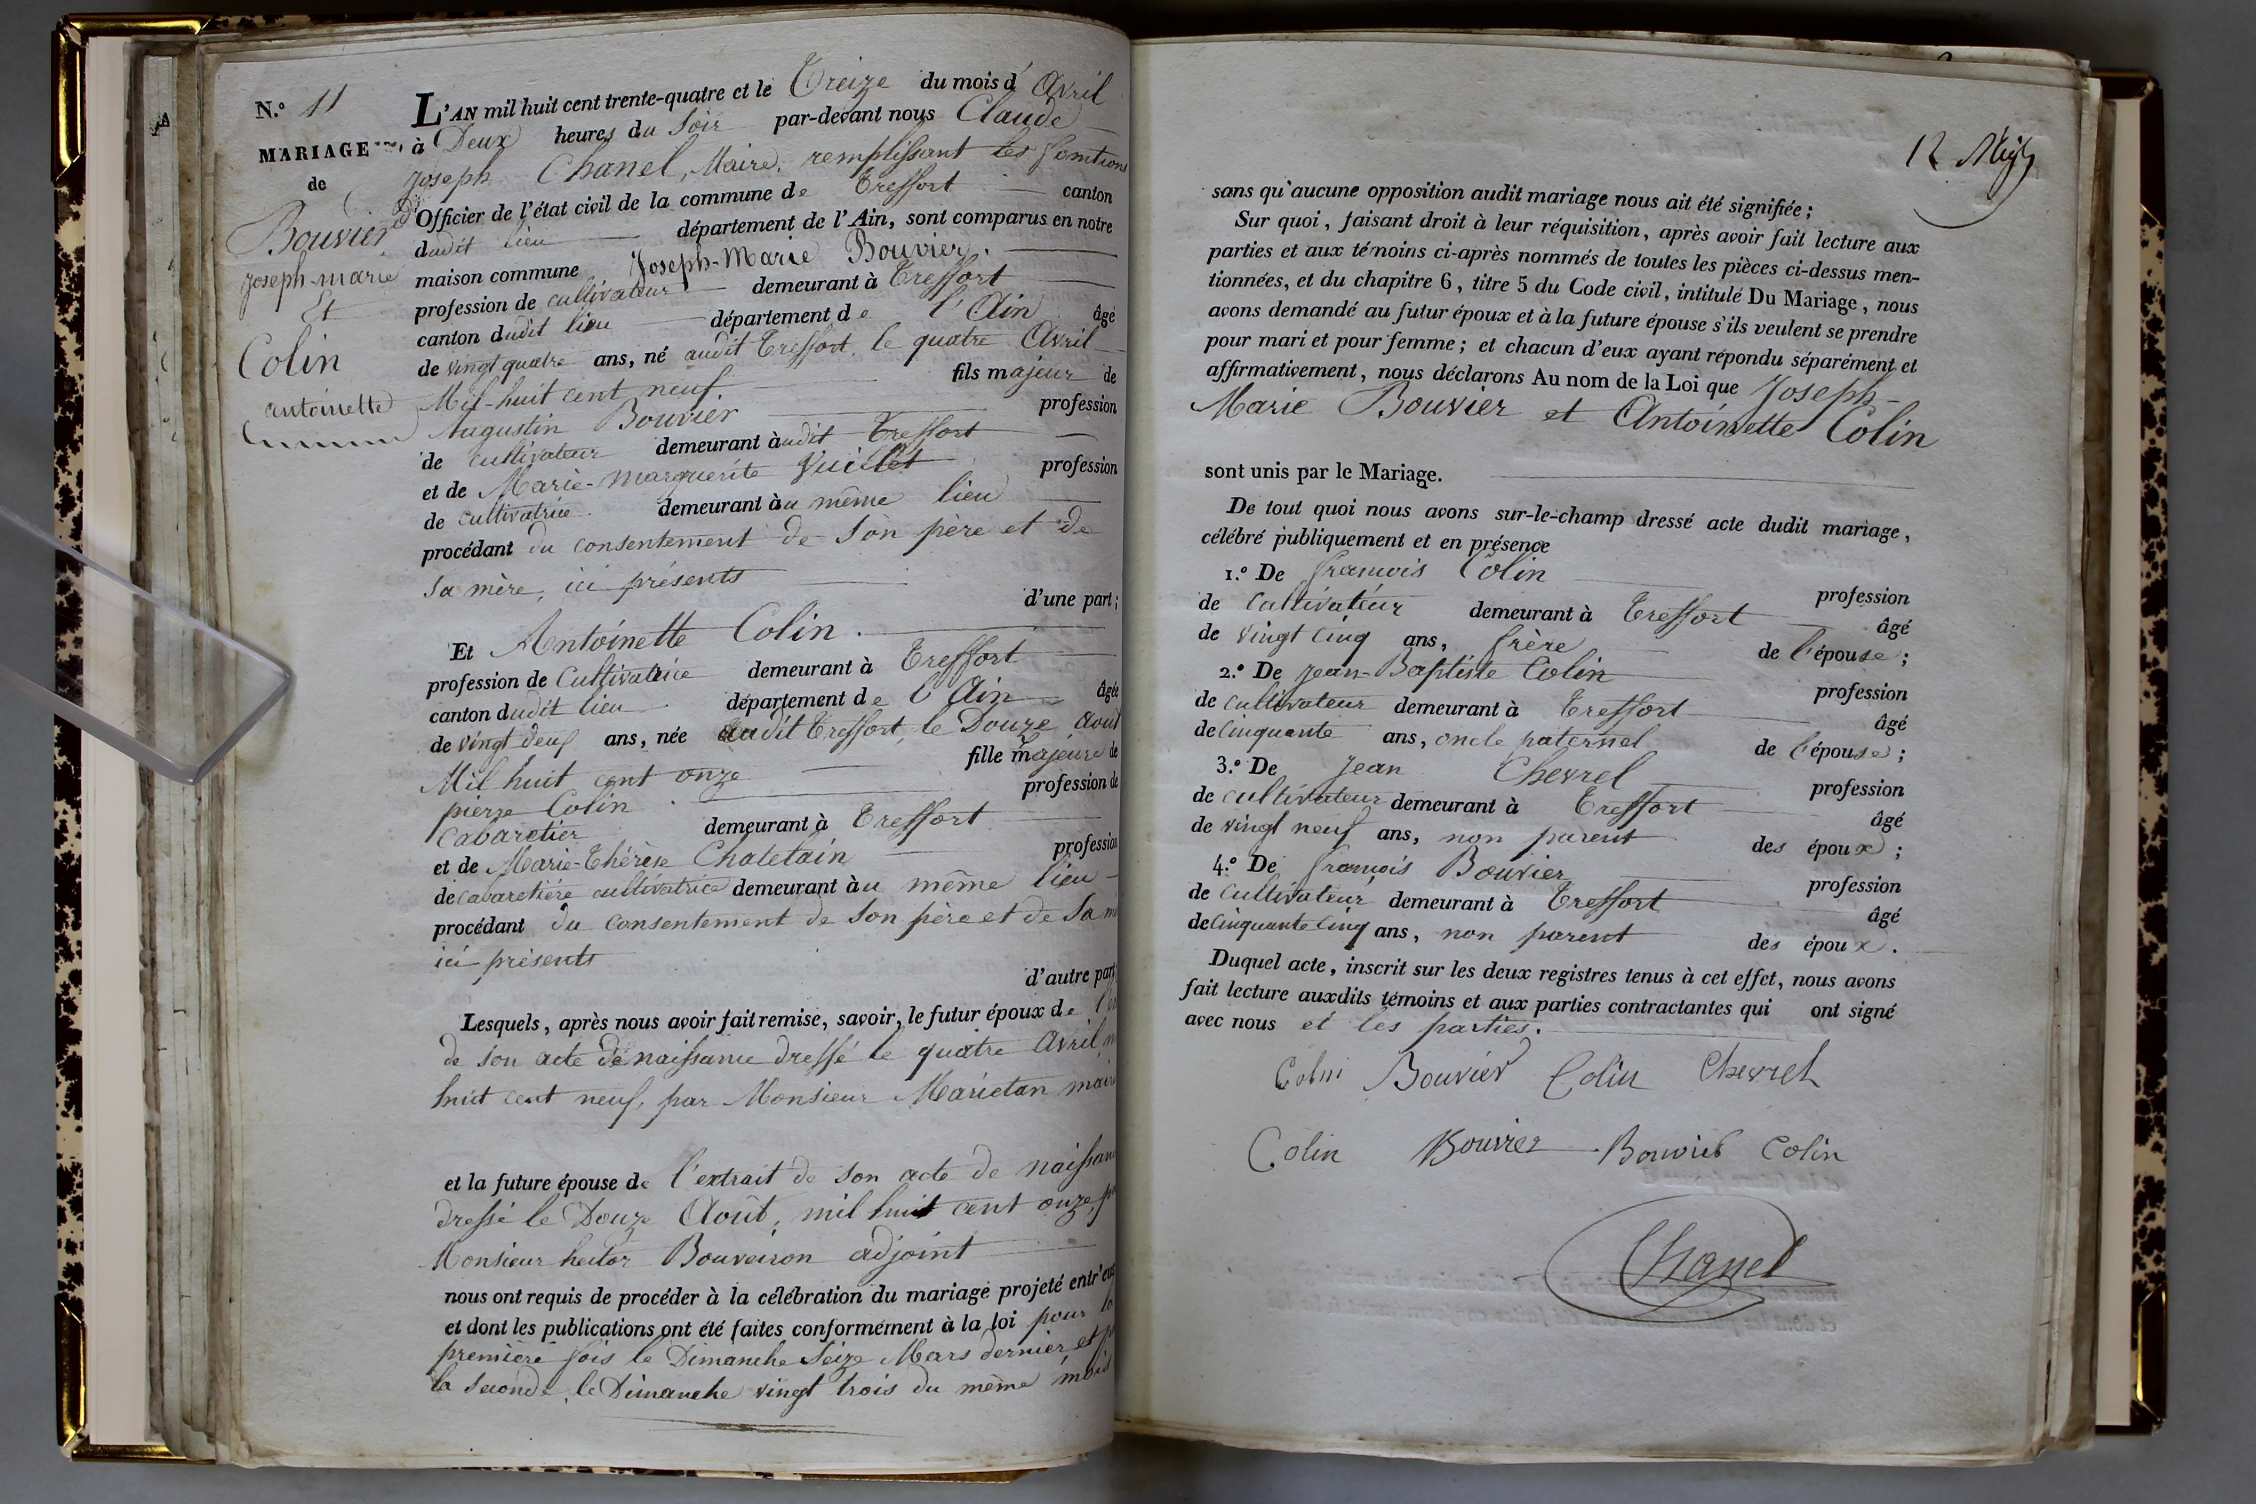 N.º 11
MARIAGE
de
Bouvier
Joseph-marie
Et
Colin
antoinette
L'AN mil huit cent trente-quatre et le Treize du mois d'Avril
à Deux heures du Soir par-devant nous Claude
Joseph Chanel, Maire, remplissant les fonctions
d'Officier de l'état civil de la commune de Treffort canton
dudit lieu département de l'Ain, sont comparus en notre
maison commune Joseph-Marie Bouvier.
profession de cultivateur demeurant à Treffort
canton dudit lieu département de l'Ain âgé
de vingt quatre ans, né audit Treffort, le quatre Avril
Mil-huit cent neuf. fils majeur de
Augustin Bouvier profession
de cultivateur demeurant àudit Treffort
et de Marie-Marguerite Vuillet profession
de cultivatrice. demeurant àu même lieu
procédant du consentement de Son père et de
Sa mère, ici présents
d'une part;
Et Antoinette Colin.
profession de Cultivatrice demeurant à Treffort
canton dudit lieu département de l'Ain âgée
de vingt deux ans, née audit Treffort, le Douze Aout
Mil huit cent onze fille majeure de
pierre Colin. profession de
Cabaretier demeurant à Treffort
et de Marie-Thérèse Chatelain profession
de cabaretière cultivatrice demeurant àu même lieu
procédant du consentement de Son père et de Sa
ici présents
d'autre part
Lesquels, après nous avoir fait remise, savoir, le futur époux de
de son acte de naissance dressé le quatre Avril
huit cent neuf, par Monsieur Marietan maire
et la future épouse de l'extrait de son acte de naissance
dressé le Douze Août, mil huit cent onze,
Monsieur hector Bouveiron adjoint
nous ont requis de procéder à la célébration du mariage projeté entr'eux
et dont les publications ont été faites conformément à la loi pour la
première fois le Dimanche Seize Mars dernier, et
la Seconde, le Dimanche vingt trois du même mois
12
sans qu'aucune opposition audit mariage nous ait été signifiée;
Sur quoi, faisant droit à leur réquisition, après avoir fait lecture aux
parties et aux témoins ci-après nommés de toutes les pièces ci-dessus men-
tionnées, et du chapitre 6, titre 5 du Code civil, intitulé Du Mariage, nous
avons demandé au futur époux et à la future épouse s'ils veulent se prendre
pour mari et pour femme; et chacun d'eux ayant répondu séparément et
affirmativement, nous déclarons Au nom de la Loi que Joseph-
Marie Bouvier et Antoinette Colin
sont unis par le Mariage.
De tout quoi nous avons sur-le-champ dressé acte dudit mariage,
célébré publiquement et en présence
1.º De françois Colin profession
de Cultivateur demeurant à Treffort âgé
de vingt cinq ans, frère de l'épouse;
2.º De jean-Baptiste Colin profession
de cultivateur demeurant à Treffort âgé
de Cinquante ans, oncle paternel de l'épouse;
3.º De Jean Chevrel profession
de cultivateur demeurant à Treffort âgé
de vingt neuf ans, non parent des époux;
4.º De françois Bouvier profession
de Cultivateur demeurant à Treffort âgé
de Cinquante Cinq ans, non parent des époux.
Duquel acte, inscrit sur les deux registres tenus à cet effet, nous avons
fait lecture auxdits témoins et aux parties contractantes qui ont signé
avec nous et les parties.
Colin Bouvier Colin Chevrel
Colin Bouvier Bouvier Colin
Chanel